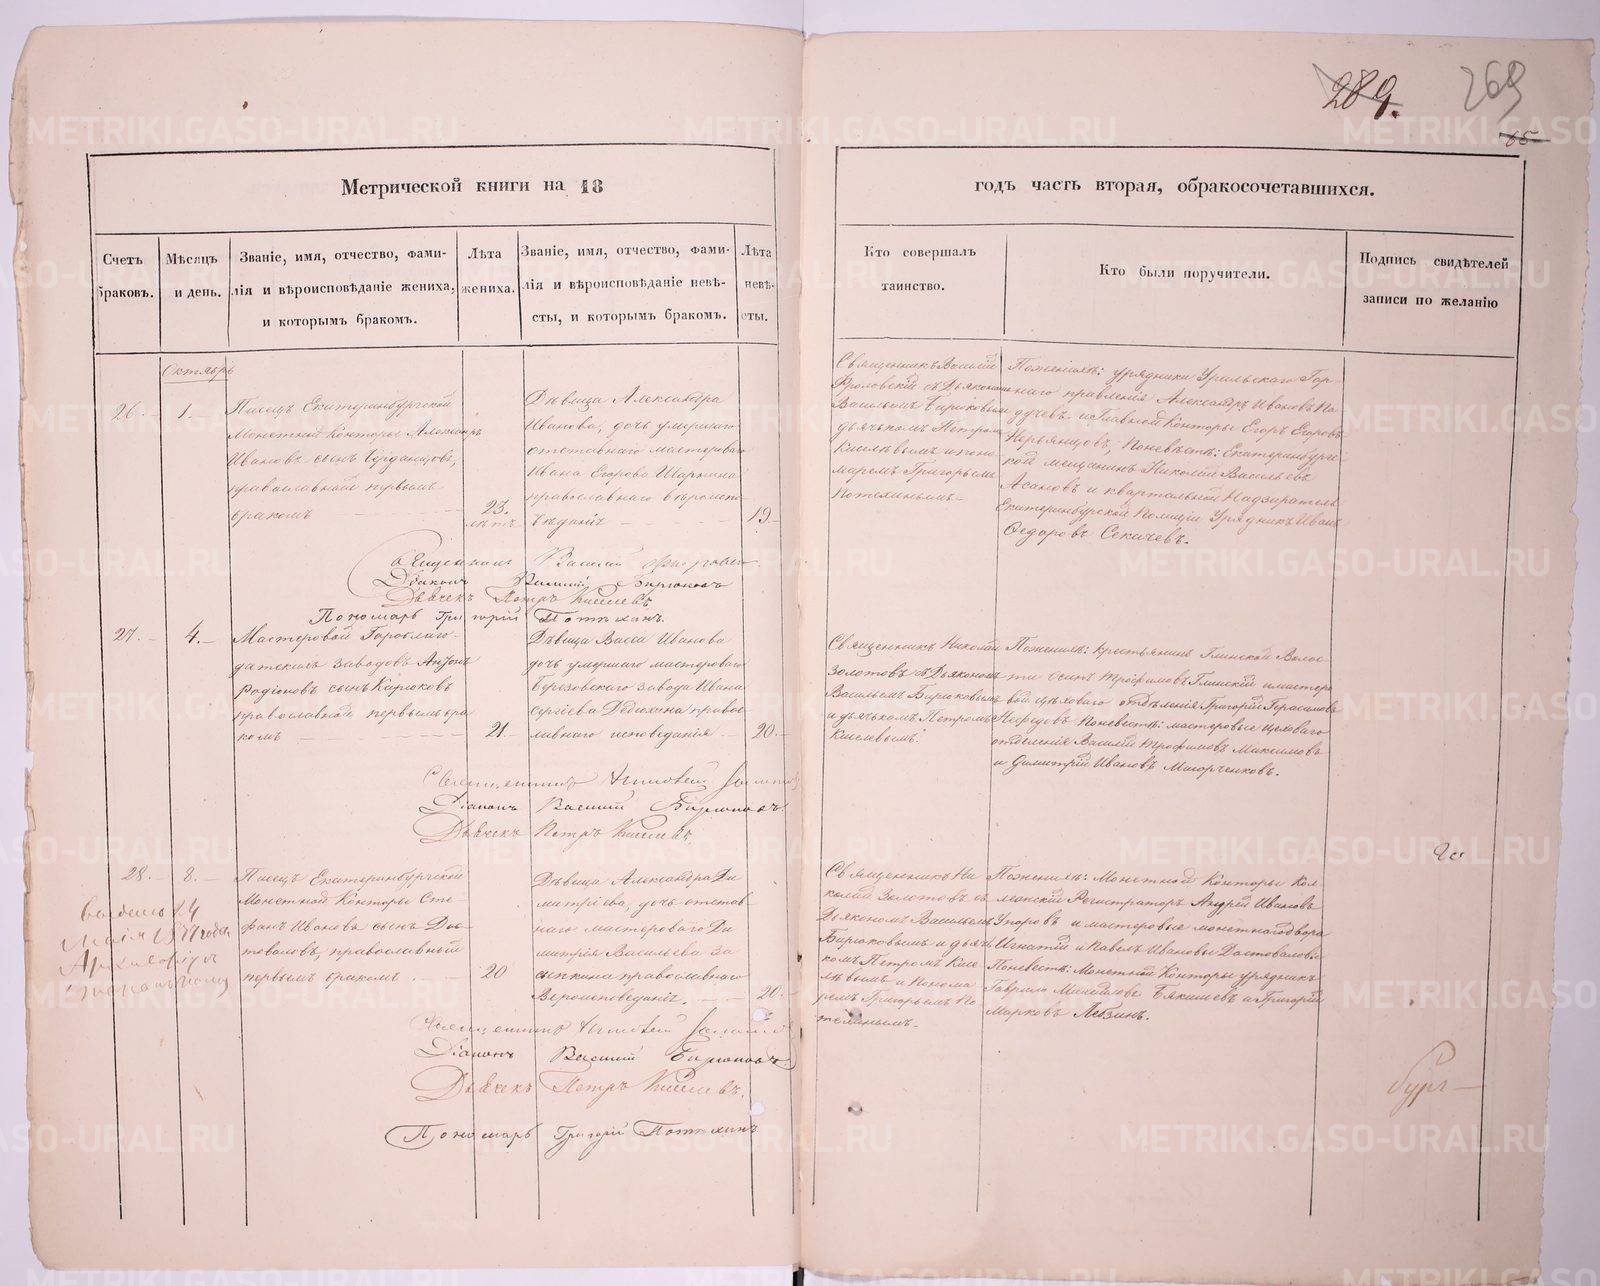 289.
269
65
Метрической книги на 18
годъ часть вторая, обракосочетавшихся.
Счетъ браковъ.
Мѣсяцъ и день.
Званіе, имя, отчество, фами-
лія и вѣроисповѣданіе жениха,
и которымъ бракомъ.
Лѣта
жениха.
Званіе, имя, отчество, фами-
лія и вѣроисповѣданіе невѣ-
сты, и которымъ бракомъ.
Лѣта
невѣ-
сты.
Кто совершалъ
таинство.
Кто были поручители.
Подпись свидѣтелей
записи по желанію
Октябрь
26.
1.
Писецъ Екатеринбургской
Монетной Конторы Александръ
Ивановъ сынъ
православный первымъ
бракомъ
23.
лѣтъ
Дѣвица Александра
Иванова, дочь умершаго
отставнаго мастероваго
Ивана Егорова
православнаго вѣроиспо-
вѣданія
19
Священникъ Василій
Фроловскій съ Діякономъ
Васильемъ Бирюковымъ
дьячькомъ Петромъ
Киселевымъ и поно-
маремъ Григорьемъ
Потехинымъ
Поженихѣ: урядники Уральскаго Гор-
наго правления Александръ Ивановъ
и Главной Конторы Егоръ Егоровъ
Поневѣстѣ: Екатеринбургс-
кой мещанинъ Николай Васильевъ
Асановъ и квартальной Надзиратель
Екатеринбургской Полиціи Урядникъ Иванъ
Ѳедоровъ Секачевъ.
Священникъ Василій Фроловскій
Діаконъ Василій Бирюковъ
Дьячекъ Петръ Киселевъ
Пономарь Григорій Потѣхинъ
27.
4.
Мастеровой Гороблаго-
датскихъ заводовъ Антонъ
Родіоновъ сынъ Кирюковъ
православной первымъ бра
комъ
21
Дѣвица Васса Иванова
дочь умершаго мастероваго
Березовскаго завода Ивана
Сергіева Дедюхина правос-
лавнаго исповеданія
20
Священникъ Николай
Золотовъ съ Діякономъ
Васильемъ Бирюковымъ
и дьячькомъ Петромъ
Киселевымъ.
Поженихѣ: крестьянинъ Глинской Волос-
ти Осипъ Трофимовъ Глинскій и мастеро
вой цеховаго отдѣленія Григорій Герасимовъ
Нефедовъ Поневестѣ: мастеровые цеховаго
отделенія Василій Трофимовъ Максимовъ
и Димитрій Ивановъ
Священникъ Николай Золотовъ
Діаконъ Василій Бирюковъ
Дьячекъ Петръ Киселевъ.
28.
8.
Писецъ Екатеринбургской
Монетной Конторы Сте-
фанъ Ивановъ сынъ Дос-
товаловъ, православный
первымъ бракомъ
20
Дѣвица Александра Ди
митріева, дочь отстав
наго мастероваго Ди
митрія Васильева За
сыпкина православнаго
Вероисповеданія.
20.
Священникъ Ни
колай Золотовъ съ
Дьякономъ Васильемъ
Бирюковымъ и дьячь
комъ Петромъ Кисе
лѣвымъ и Понома
ремъ Григорьемъ По
техинымъ.
Поженихѣ: Монетной Конторы Кол-
лежскій Регистраторъ Андрей Ивановъ
Упоровъ и мастеровые монетнагодвора
Игнатій и Павелъ Ивановы Достоваловы
Поневестѣ: Монетной Конторы урядникъ
Гаврило Михайловъ и Григорій
Марковъ
Священникъ Николай Золотовъ
Діаконъ Василій Бирюковъ.
Дьячекъ Петръ Киселевъ.
Пономарь Григорій Потѣхинъ
METRIKI.GASO-URAL.RU